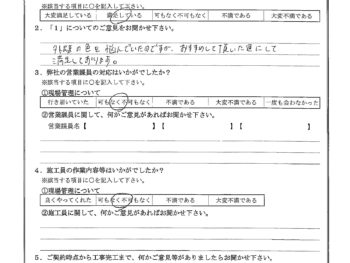 ※該当する項目に○を記入して下さい。
大変満足している 満足している 可もなく不可もなく 不満である 大変不満である
2．「1」についてのご意見をお聞かせ下さい。
外壁の色を悩んでいたのですが、おすすめして頂いた色にして
満足しております。
3．弊社の営業課員の対応はいかがでしたか？
※該当する項目に○を記入して下さい。
①現場管理について
行き届いていた 可もなく不可もなく 不満である 大変不満である 一度も会わなかった
②営業課員に関して、何かご意見があればお聞かせ下さい。
営業課員名【 】【 】【 】
4．施工員の作業内容等はいかがでしたか？
※該当する項目に○を記入して下さい。
①現場管理について
良くやってくれた 可もなく不可もなく 不満である 大変不満である
②施工員に関して、何かご意見があればお聞かせ下さい。
5．ご契約時点から工事完工まで、何かご意見等がありましたらお聞かせ下さい。